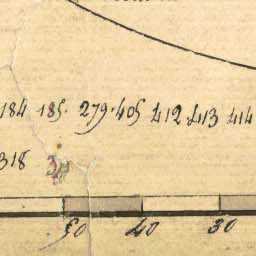 184 185. 279. 405 412. 413 414
318
50 40 30